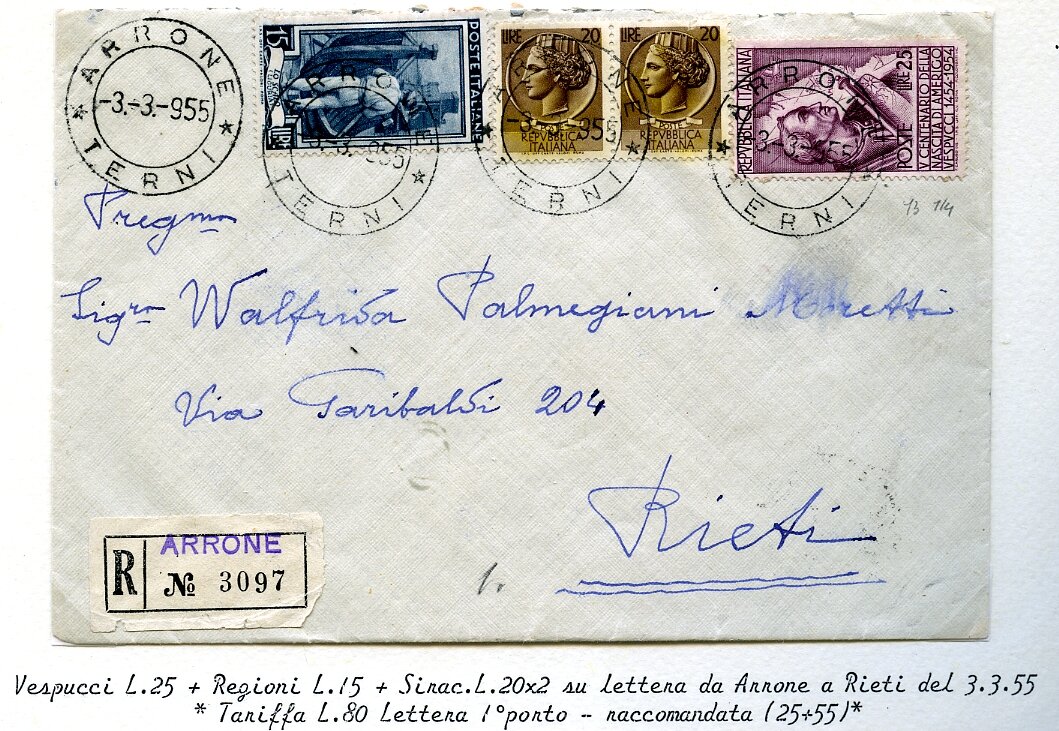 ARRONE
-3.-3-955
TERNI
15
POSTE ITALIANE
LIRE 20
REPVBBLICA
ITALIANA
LIRE 20
REPVBBLICA
ITALIANA
REPVBBLICA ITALIANA
LIRE 25
POSTE
V CENTENARIO DELLA
NASCITA DI AMERIGO
VESPUCCI 1454-1954
ARRONE
3-3-955
TERNI
ARRONE
-3.-3-955
TERNI
ARRONE
3-3-55
TERNI
Pregma
Sigra Walfrida Palmegiani Moretti
Via Garibaldi 204
Rieti
ARRONE
R № 3097
Vespucci L.25 + Regioni L.15 + Sirac.L.20x2 su lettera da Arrone a Rieti del 3.3.55
* Tariffa L.80 Lettera 1°porto - raccomandata (25+55)*